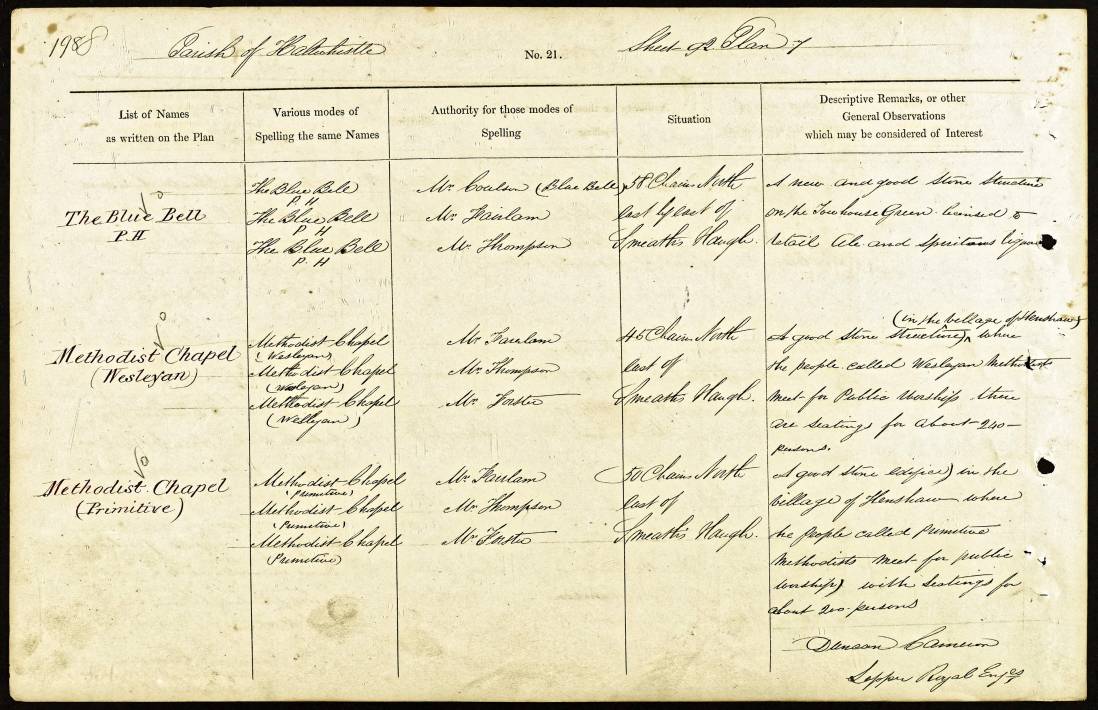 198
Parish of Haltwhistle
No. 21.
Sheet 92 Plan 7
List of Names
as written on the Plan
Various modes of
Spelling the same Names
Authority for those modes of
Spelling
Situation
Descriptive Remarks, or other
General Observations
which may be considered of Interest
The Blue Bell
P.H
The Blue Bell
P. H
The Blue Bell
P. H
The Blue Bell
P. H
Mr. Coulson (Blue Bell)
Mr. Fairlam
Mr. Thompson
58 Chains North
East by East of
Smeaths Haugh.
A new and good Stone Structure
on the Towhouse Green licensed to
retail Ale and Spiritous liquors
Methodist Chapel
(Wesleyan)
Methodist Chapel
(Wesleyan)
Methodist Chapel
(Wesleyan)
Methodist Chapel
(Wesleyan)
Mr. Fairlam
Mr. Thompson
Mr. Forster
45 Chains North
East of
Smeaths Haugh.
(in the Village of Henshaw)
A good Stone Structure, where
the people called Wesleyan Methodists
meet for Public Worship there
are seatings for about 240
persons.
Methodist Chapel
(Primitive)
Methodist Chapel
(Primitive)
Methodist Chapel
(Primitive)
Methodist Chapel
(Primitive)
Mr. Fairlam
Mr. Thompson
Mr. Forster
50 Chains North
East of
Smeaths Haugh.
A good stone edifice in the
Village of Henshaw where
the people called Primitive
Methodists meet for public
worship with seatings for
about 200 persons
Duncan Cameron
Sapper Royal Engrs